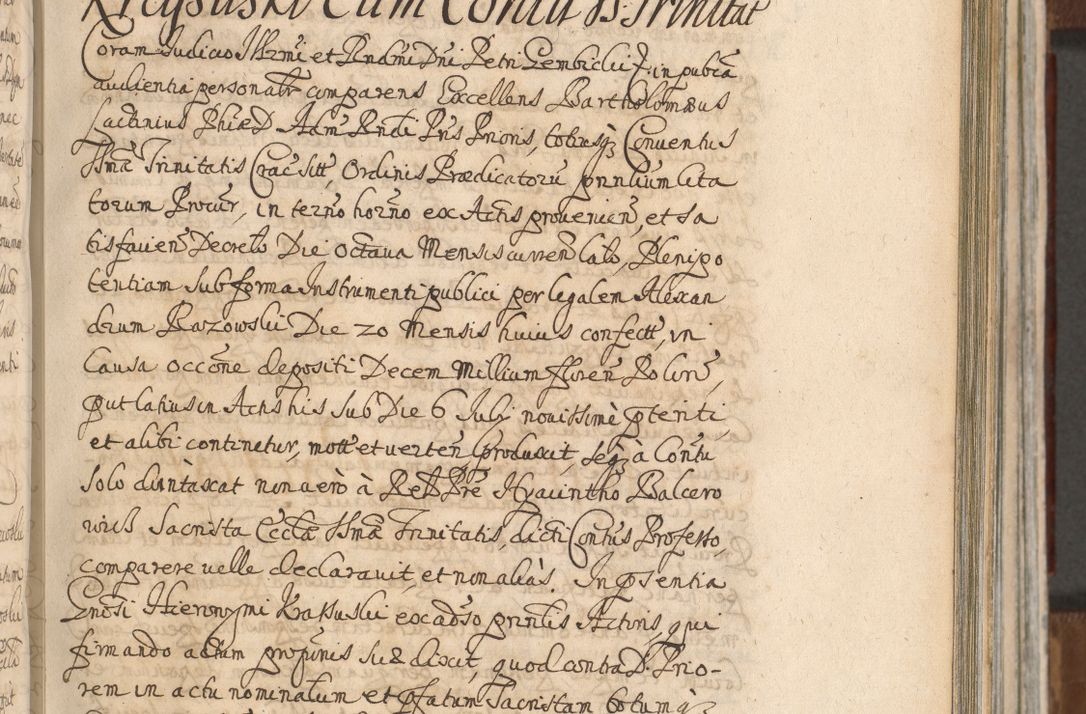 Krzysuski Cum Contu SS: Trinitat
Coram Iudicio Illrmi et Rndmi Dni Petri Gembicki E. in pubca
audientia personalr comparens Excellens Bartholomæus
Lactinius PhiæD Adm Rndi Pris Prioris, totiusqz Conventus
SSmæ Trinitatis Crac sitt, Ordinis Prædicatorũ gnnlium lita
torum Procur, in termo horno ex Actis provenien, et sa
tisfacien Decreto Die octava Mensis curren lato, Plenipo
tentiam sub forma Instrumenti publici per legalem Alexan
drum Razowski Die 20 Mensis huius confectt, in
Causa occone depositi Decem Millium floren Polon,
put latius in Actis his sub Die 6 Julij novissimè pteriti,
et alibi continetur, mott et verten produxit, seqz à Contu
solo duntaxat non verò à RendPre Hyacintho Balcero
wich Sacrista Ecclæ SSmæ Trinitatis, dicti Contus Professo,
comparere velle declaravit, et non aliàs. In psentia
Gnosi Hieronymi Krassuski ex adso prinlis Actoris, qui
firmando actum propinis suæ dixit, quod contra D. Prio-
rem in actu nominatum et pfatum Sacristam totumqz